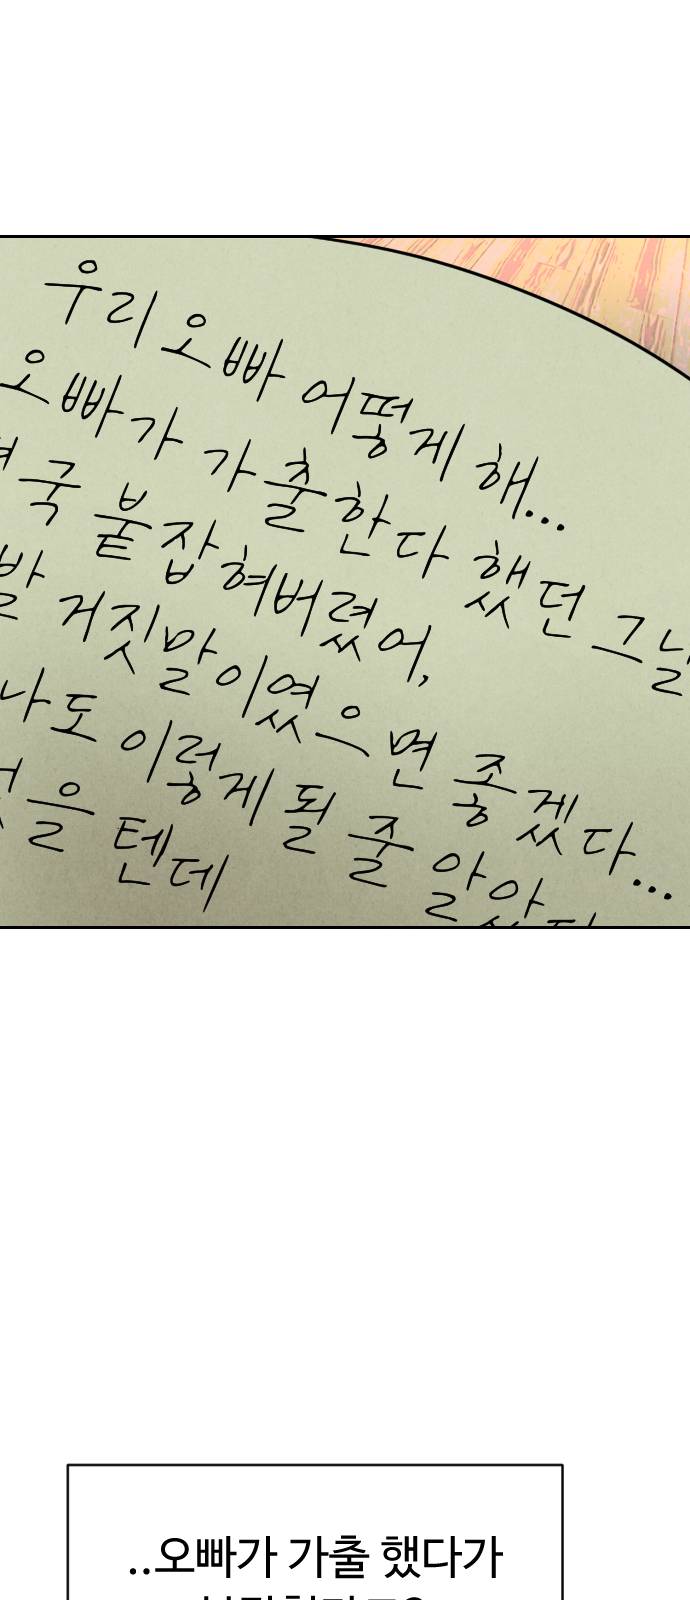 우리 오빠 어떻게 해...
오빠가 가출한다 했던 그날
붙잡혀버렸어,
거짓말이었으면 좋겠다...
나도 이렇게 될 줄 알았
텐데
..오빠가 가출 했다가